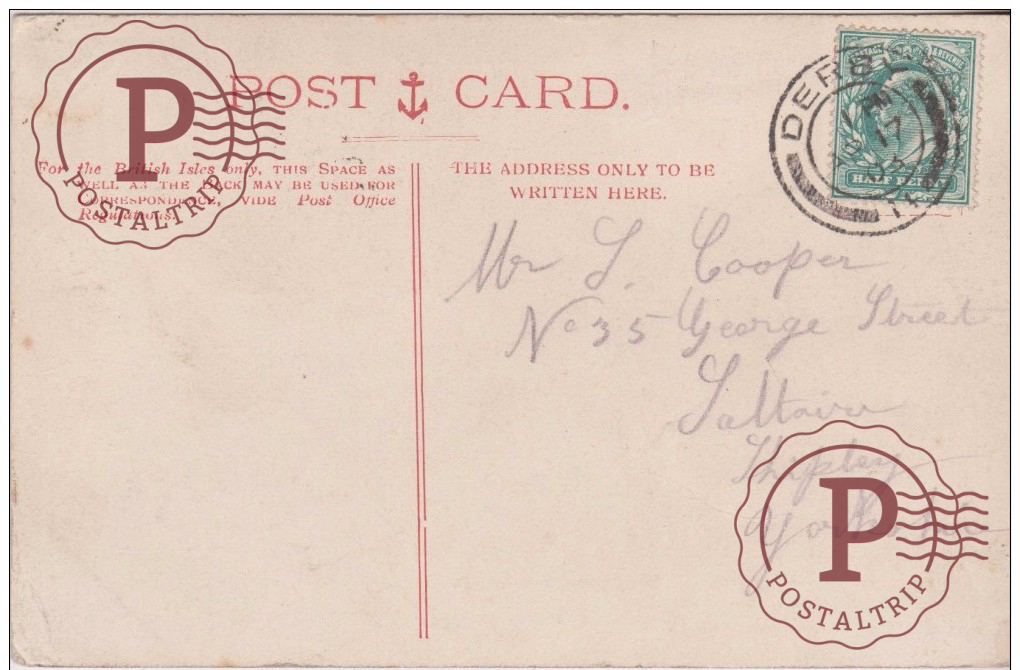 POST CARD.
For the British Isles only, THIS SPACE AS
WELL AS THE BACK MAY BE USED FOR
CORRESPONDENCE, VIDE Post Office
Regulations.
THE ADDRESS ONLY TO BE
WRITTEN HERE.
POSTAGE & REVENUE
HALF PENNY
DERBY
17
Mr
Cooper
No 35 George Street
Saltaire
Shipley
P
POSTALTRIP
P
POSTALTRIP